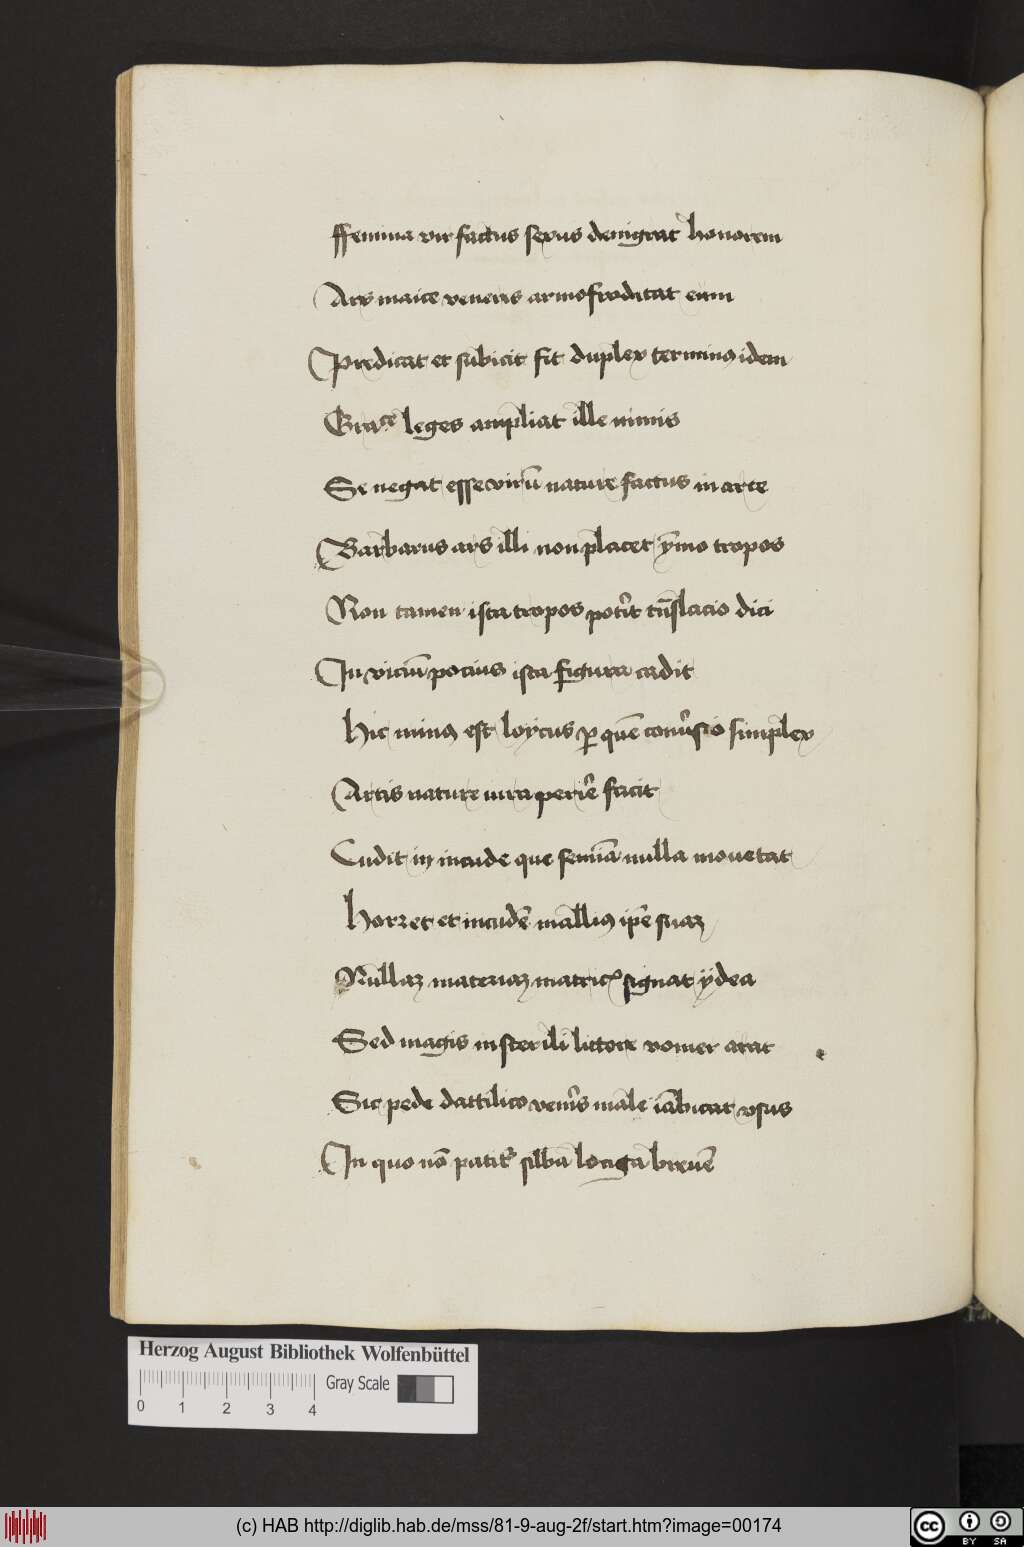 ffemina vir factus sexus denigrat honorem
Ars maice veneris armofroditat eum
Predicat et subicit fit duplex terminꝯ idem
Gra.ce leges ampliat ille nimis
Se negat esse virū nature factus in arte
Barbarus ars illi non placet ȳmo tropos
Non tamen ista tropos potit tnslacio dici
In viciū pocius ista figura cadit
Hic nimꝯ est loycus ꝑ quē conusio simplex
Artis nature iura perire facit
Cudit in incude que semīa nulla mouetat
Horret et incudē mallꝯ ipe suaꝫ
Nullaꝫ materiaꝫ matricꝭ signat ydea
Sed magis in sterili littore vomer arat
Sic pede dattilico venis male iābicat vsus
In quo nō patit silba longa breuē
Herzog August Bibliothek Wolfenbüttel
Gray Scale
0 1 2 3 4
(c) HAB http://diglib.hab.de/mss/81-9-aug-2f/start.htm?image=00174
cc BY SA